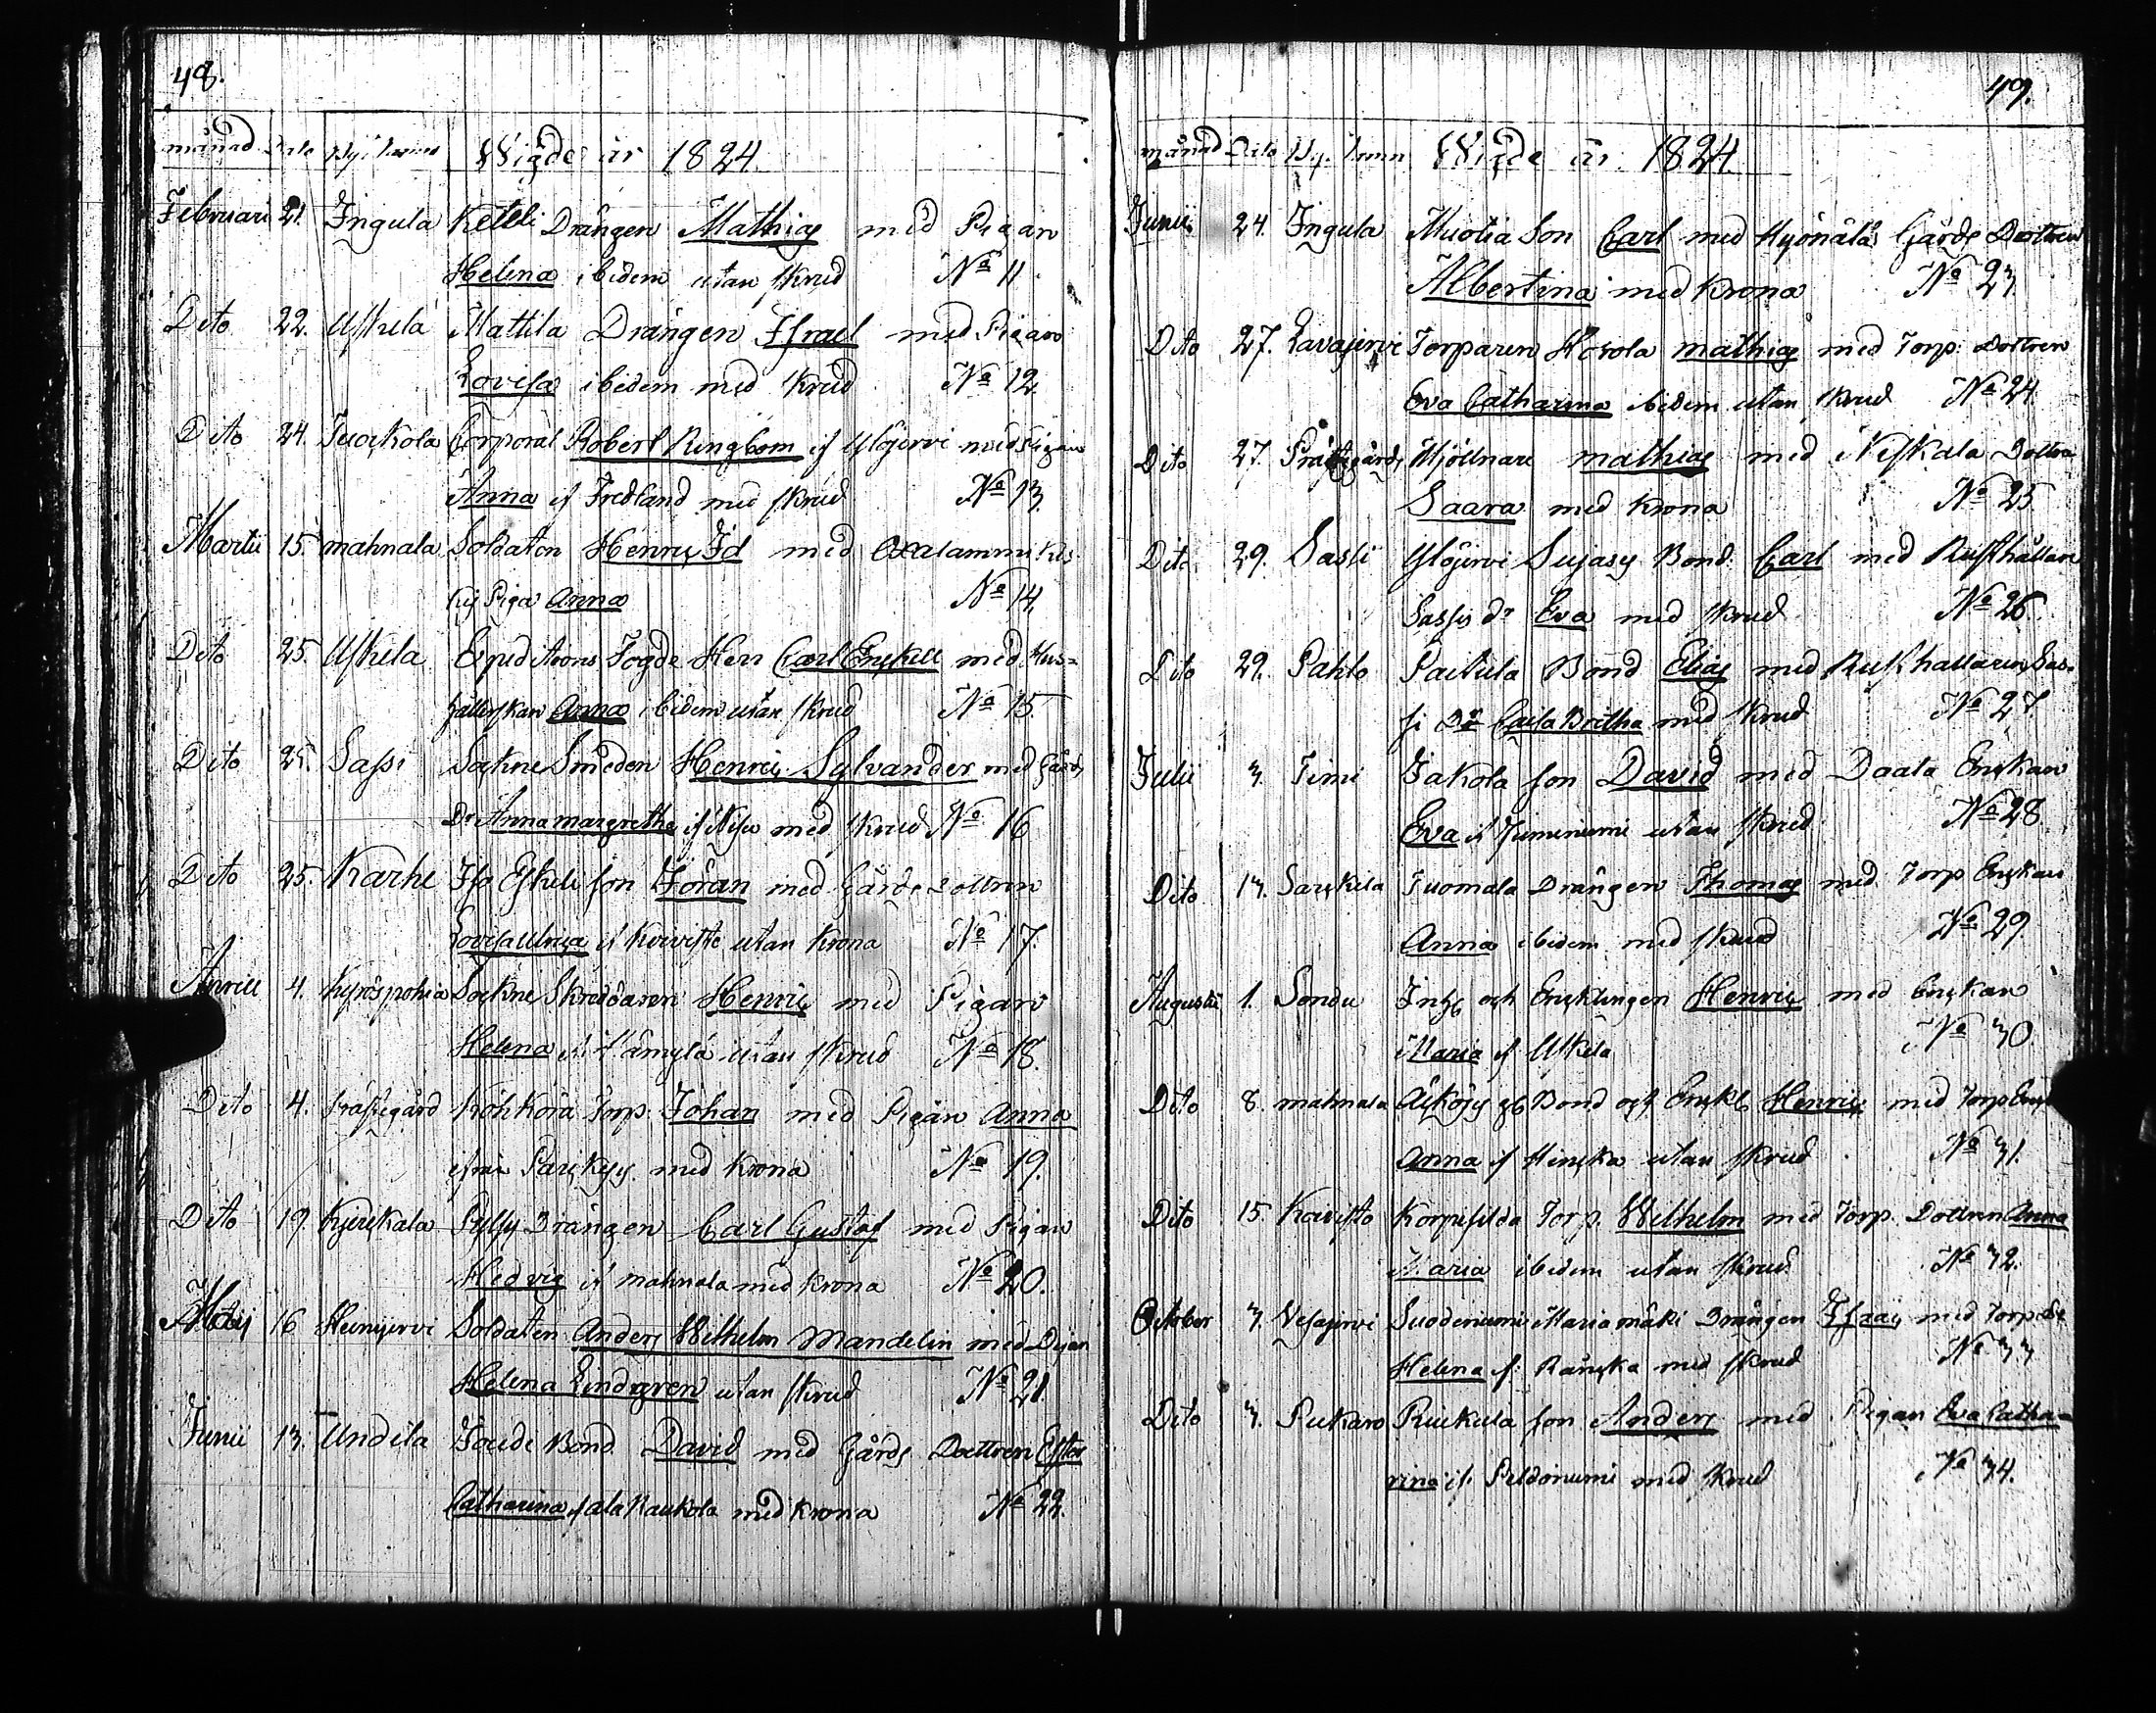 48.
månad Dato Wigde år 1824.
Februari 21. Ingula Ketteli Drängen Mathias med Pigan
Helena ibidem utan skrud No 11
Dito 22. Uskela Mattila Drängen Israel med Pigan
Lovisa ibidem med skrud No 12
Dito 24. Tuorkola Corporal Robert Ringbom if Ylöjervi med Pigan
Anna if Fredland med skrud No 13.
Martii 15 mahnala Soldaten Henric Id med
Pigo Anna No 14
Dito 25. Uskela Expeditions Fogde Herr Carl Enskell med Hus=
hållerskan Anna ibidem utan skrud No 15
Dito 25. Sassi Sockne Smeden Henric Sylvander med Gårds
Dr Anna margretha if Nisu med skrud No 16
Dito 25. Karhe Iso Eskeli son Jöran med Gårds Dottren
Lovisa Ulrica if Koivisto utan Krona No 17.
Aprill 4. Kyröspohia Sockne Skreddaren Henric med Pigan
Helena if utan skrud No 18.
Dito 4. Prästegård Torp. Johan med Pigan Anna
ifrån med Krona No 19.
Dito 19. Kyrskala Drängen Carl Gustaf med Pigan
Hedvig if mahnala med Krona No 20.
Maij 16 Heinijervi Soldaten Anders Wilhelm Mandelin med
Helena Lindgren utan skrud No 21.
Junii 13. Undila Bond David med Gårds Dottren Ester
Catharina if ala Kaukola med Krona No 22.
49.
månad Dato Wigde år 1824.
Junii 24. Ingula Muotia Son Carl med Hyönälä Gårds Dottren
Albertina med Krona No 23
Dito 27. Lavajervi Torparen mathias med Torp. Dottren
Eva Catharina ibidem utan skrud No 24
Dito 27. Prästegårds Mjöllnare mathias med Niskala Dottra
Saara med Krona No 25
Dito 29. Sassi Ylöjervi Bond. Carl med Rusthållare
Sassis dr Eva med skrud No 26
Dito 29. Pahlo Paitula Bond Elias med Rusthallaren Sas=
si Dr Caisa Britha med skrud No 27.
Julii 3. Timi Jakola son David med Daala Enskan
Eva if utan skrud No 28
Dito 13. Sarkila Tuomala Drängen Thomas med Torp Enskan
Anna ibidem med skrud No 29
Augusti 1. Sondu Inhs och Enklingen Henric med Enskan
Maria if Uskila No 30.
Dito 8. mahnala Bond och Enskl Henric med Torp
Anna if utan skrud No 31.
Dito 15. Koivisto Torp. Wilhelm med Torp. Dottren Anna
Maria ibidem utan skrud No 32.
October 3. Vesajervi Suodeniemi Mariamäki Drängen med Torp
Helena if Ränska med skrud No 33
Dito 3. Pukaro Riukula son Anders med Pigan Eva Catha=
rina if. med skrud No 34.